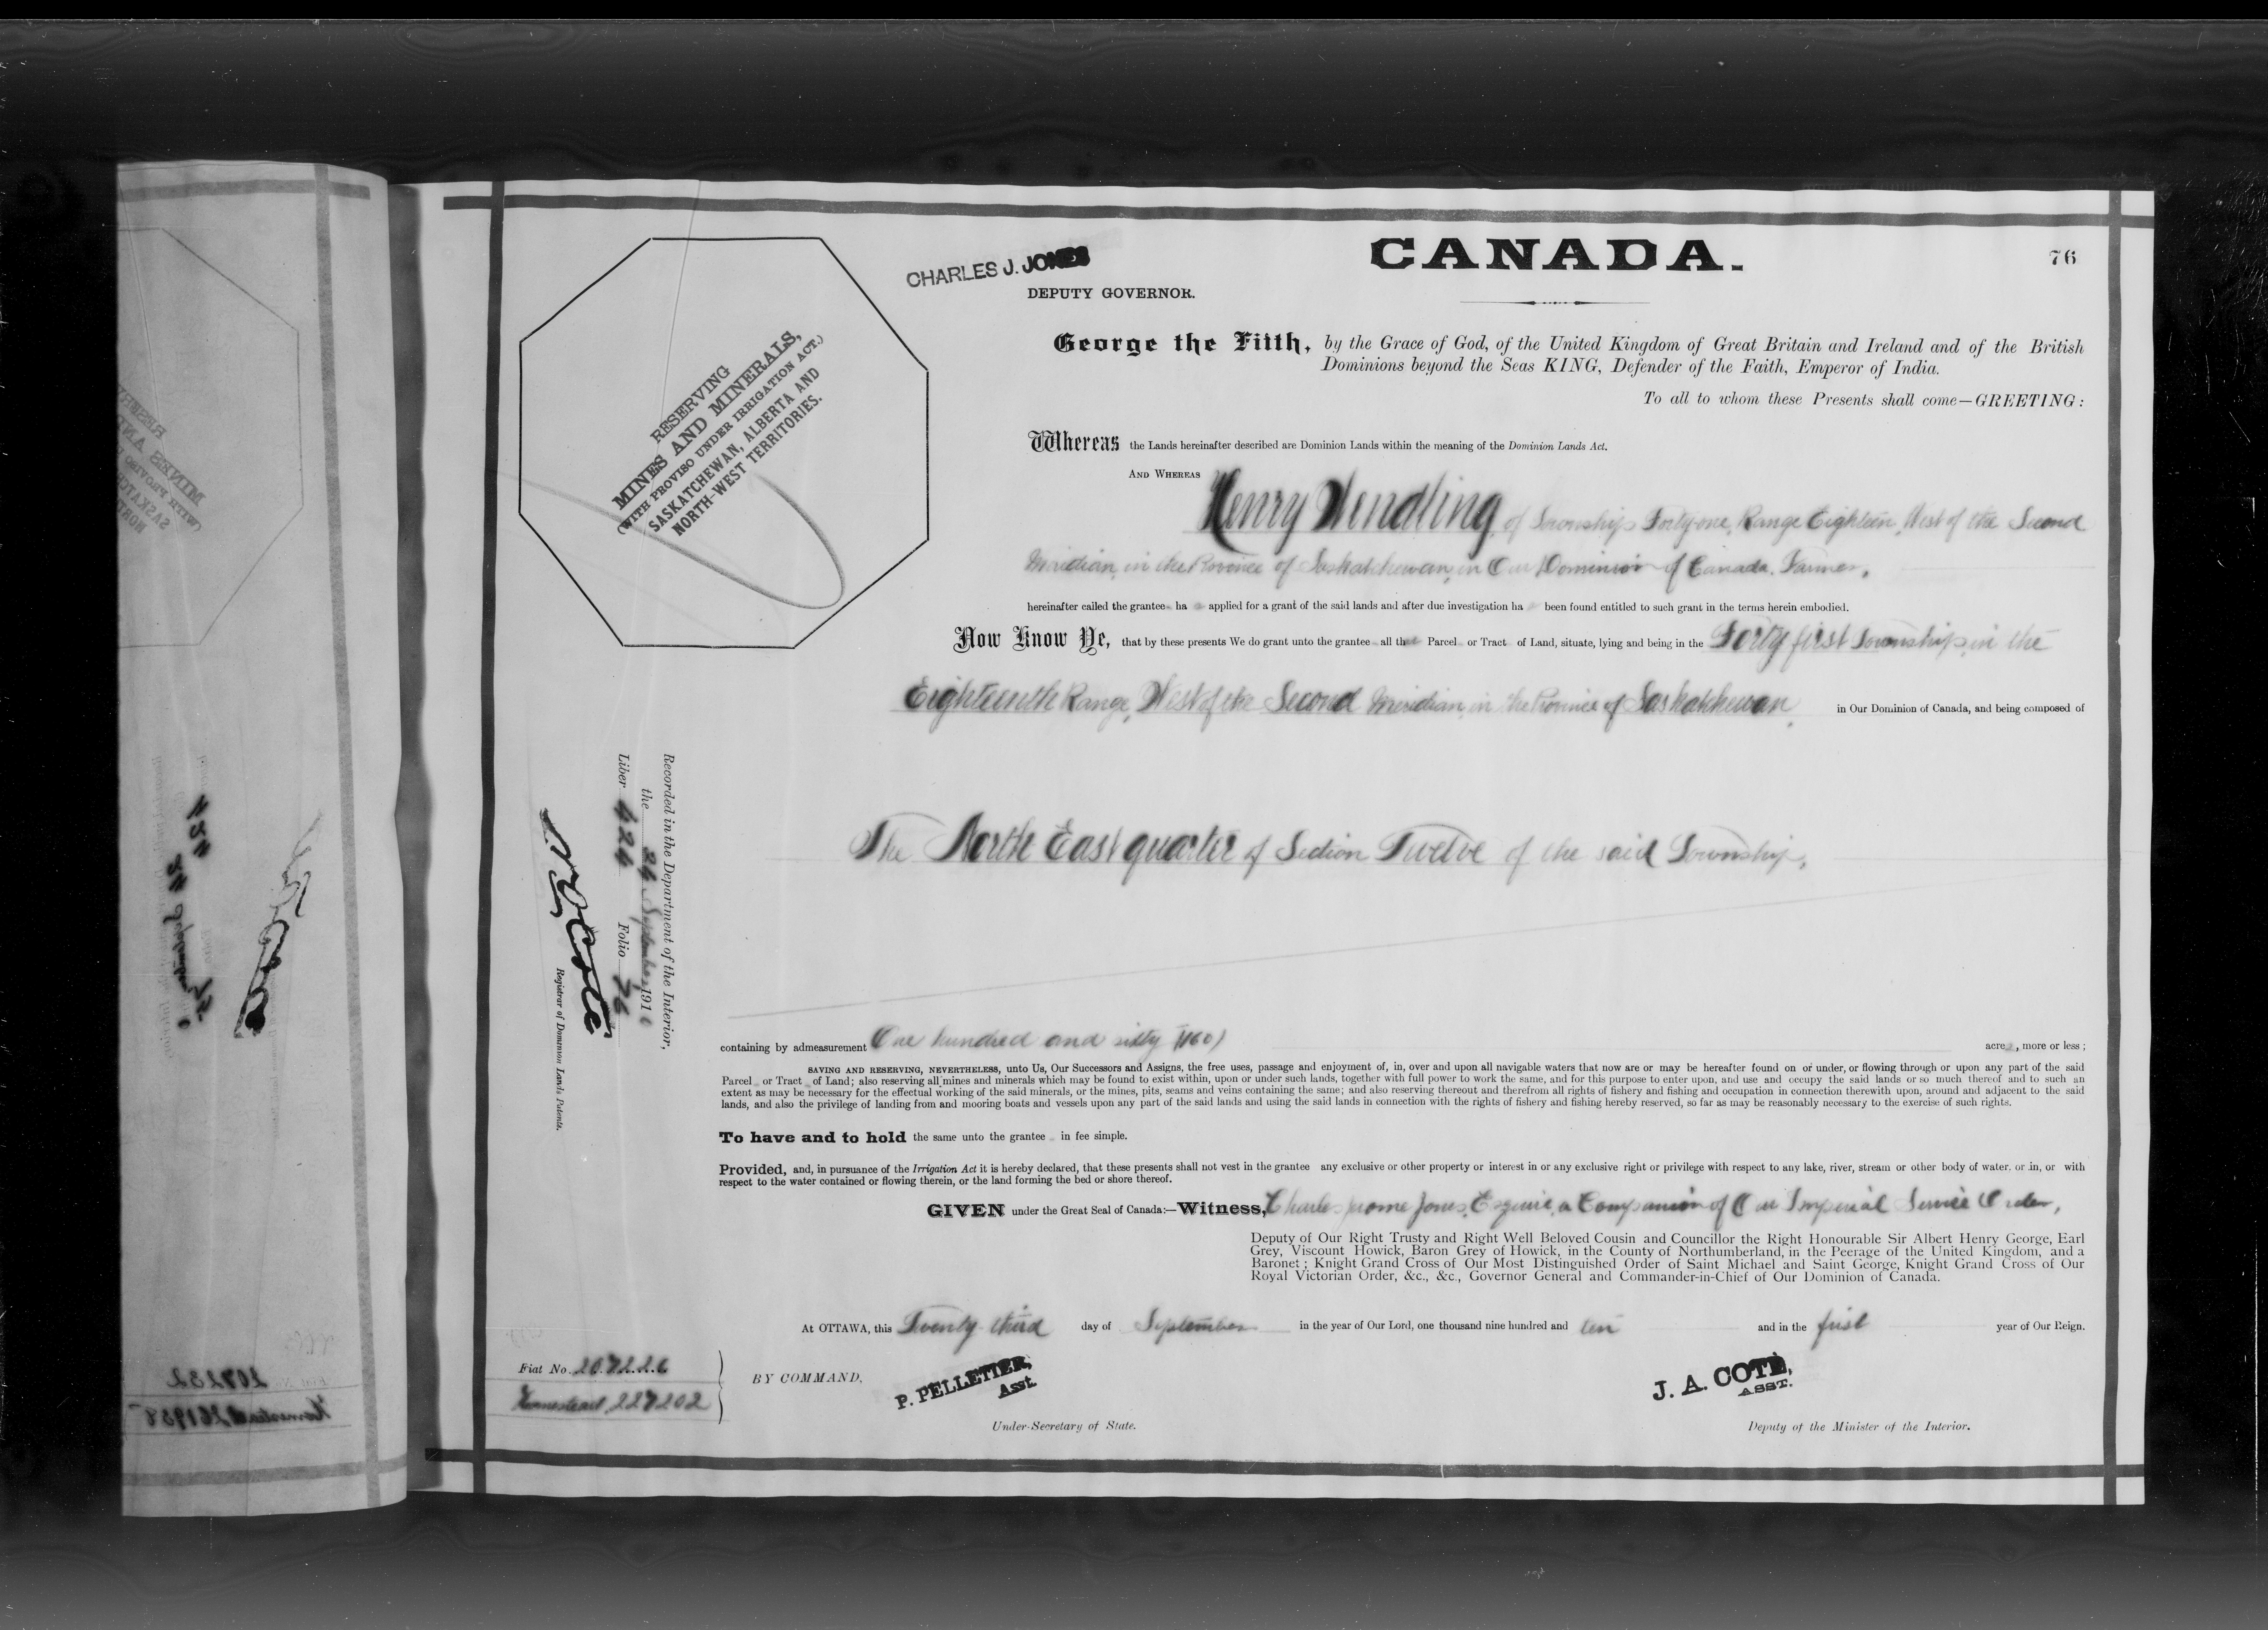 CANADA.
76
CHARLES J. JONES
DEPUTY GOVERNOR.
RESERVING
MINES AND MINERALS,
(WITH PROVISO UNDER IRRIGATION ACT.)
SASKATCHEWAN, ALBERTA AND
NORTH-WEST TERRITORIES.
George the Fifth, by the Grace of God, of the United Kingdom of Great Britain and Ireland and of the British
Dominions beyond the Seas KING, Defender of the Faith, Emperor of India.
To all to whom these Presents shall come—GREETING:
Whereas the Lands hereinafter described are Dominion Lands within the meaning of the Dominion Lands Act.
AND WHEREAS Henry Wendling, of Township Forty-one, Range Eighteen, West of the Second
Meridian, in the Province of Saskatchewan, in Our Dominion of Canada, Farmer,
hereinafter called the grantee ha applied for a grant of the said lands and after due investigation ha been found entitled to such grant in the terms herein embodied.
Now Know Ye, that by these presents We do grant unto the grantee all that Parcel or Tract of Land, situate, lying and being in the Forty first Township, in the
Eighteenth Range, West of the Second Meridian, in the Province of Saskatchewan, in Our Dominion of Canada, and being composed of
The North East quarter of Section Twelve of the said Township,
Recorded in the Department of the Interior,
the 24 September 1910
Liber 424 Folio 76
N. O. Coté
Registrar of Dominion Land Patents.
containing by admeasurement One hundred and sixty (160) acres, more or less;
SAVING AND RESERVING, NEVERTHELESS, unto Us, Our Successors and Assigns, the free uses, passage and enjoyment of, in, over and upon all navigable waters that now are or may be hereafter found on or under, or flowing through or upon any part of the said
Parcel or Tract of Land; also reserving all mines and minerals which may be found to exist within, upon or under such lands, together with full power to work the same, and for this purpose to enter upon, and use and occupy the said lands or so much thereof and to such an
extent as may be necessary for the effectual working of the said minerals, or the mines, pits, seams and veins containing the same; and also reserving thereout and therefrom all rights of fishery and fishing and occupation in connection therewith upon, around and adjacent to the said
lands, and also the privilege of landing from and mooring boats and vessels upon any part of the said lands and using the said lands in connection with the rights of fishery and fishing hereby reserved, so far as may be reasonably necessary to the exercise of such rights.
To have and to hold the same unto the grantee in fee simple.
Provided, and, in pursuance of the Irrigation Act it is hereby declared, that these presents shall not vest in the grantee any exclusive or other property or interest in or any exclusive right or privilege with respect to any lake, river, stream or other body of water, or in, or with
respect to the water contained or flowing therein, or the land forming the bed or shore thereof.
GIVEN under the Great Seal of Canada:—Witness, Charles Jerome Jones, Esquire, a Companion of Our Imperial Service Order,
Deputy of Our Right Trusty and Right Well Beloved Cousin and Councillor the Right Honourable Sir Albert Henry George, Earl
Grey, Viscount Howick, Baron Grey of Howick, in the County of Northumberland, in the Peerage of the United Kingdom, and a
Baronet; Knight Grand Cross of Our Most Distinguished Order of Saint Michael and Saint George, Knight Grand Cross of Our
Royal Victorian Order, &c., &c., Governor General and Commander-in-Chief of Our Dominion of Canada.
At OTTAWA, this Twenty third day of September in the year of Our Lord, one thousand nine hundred and ten and in the first year of Our Reign.
Fiat No. 207226
Homestead 227202
BY COMMAND,
P. PELLETIER,
Asst.
Under-Secretary of State.
J. A. COTÉ,
ASST.
Deputy of the Minister of the Interior.